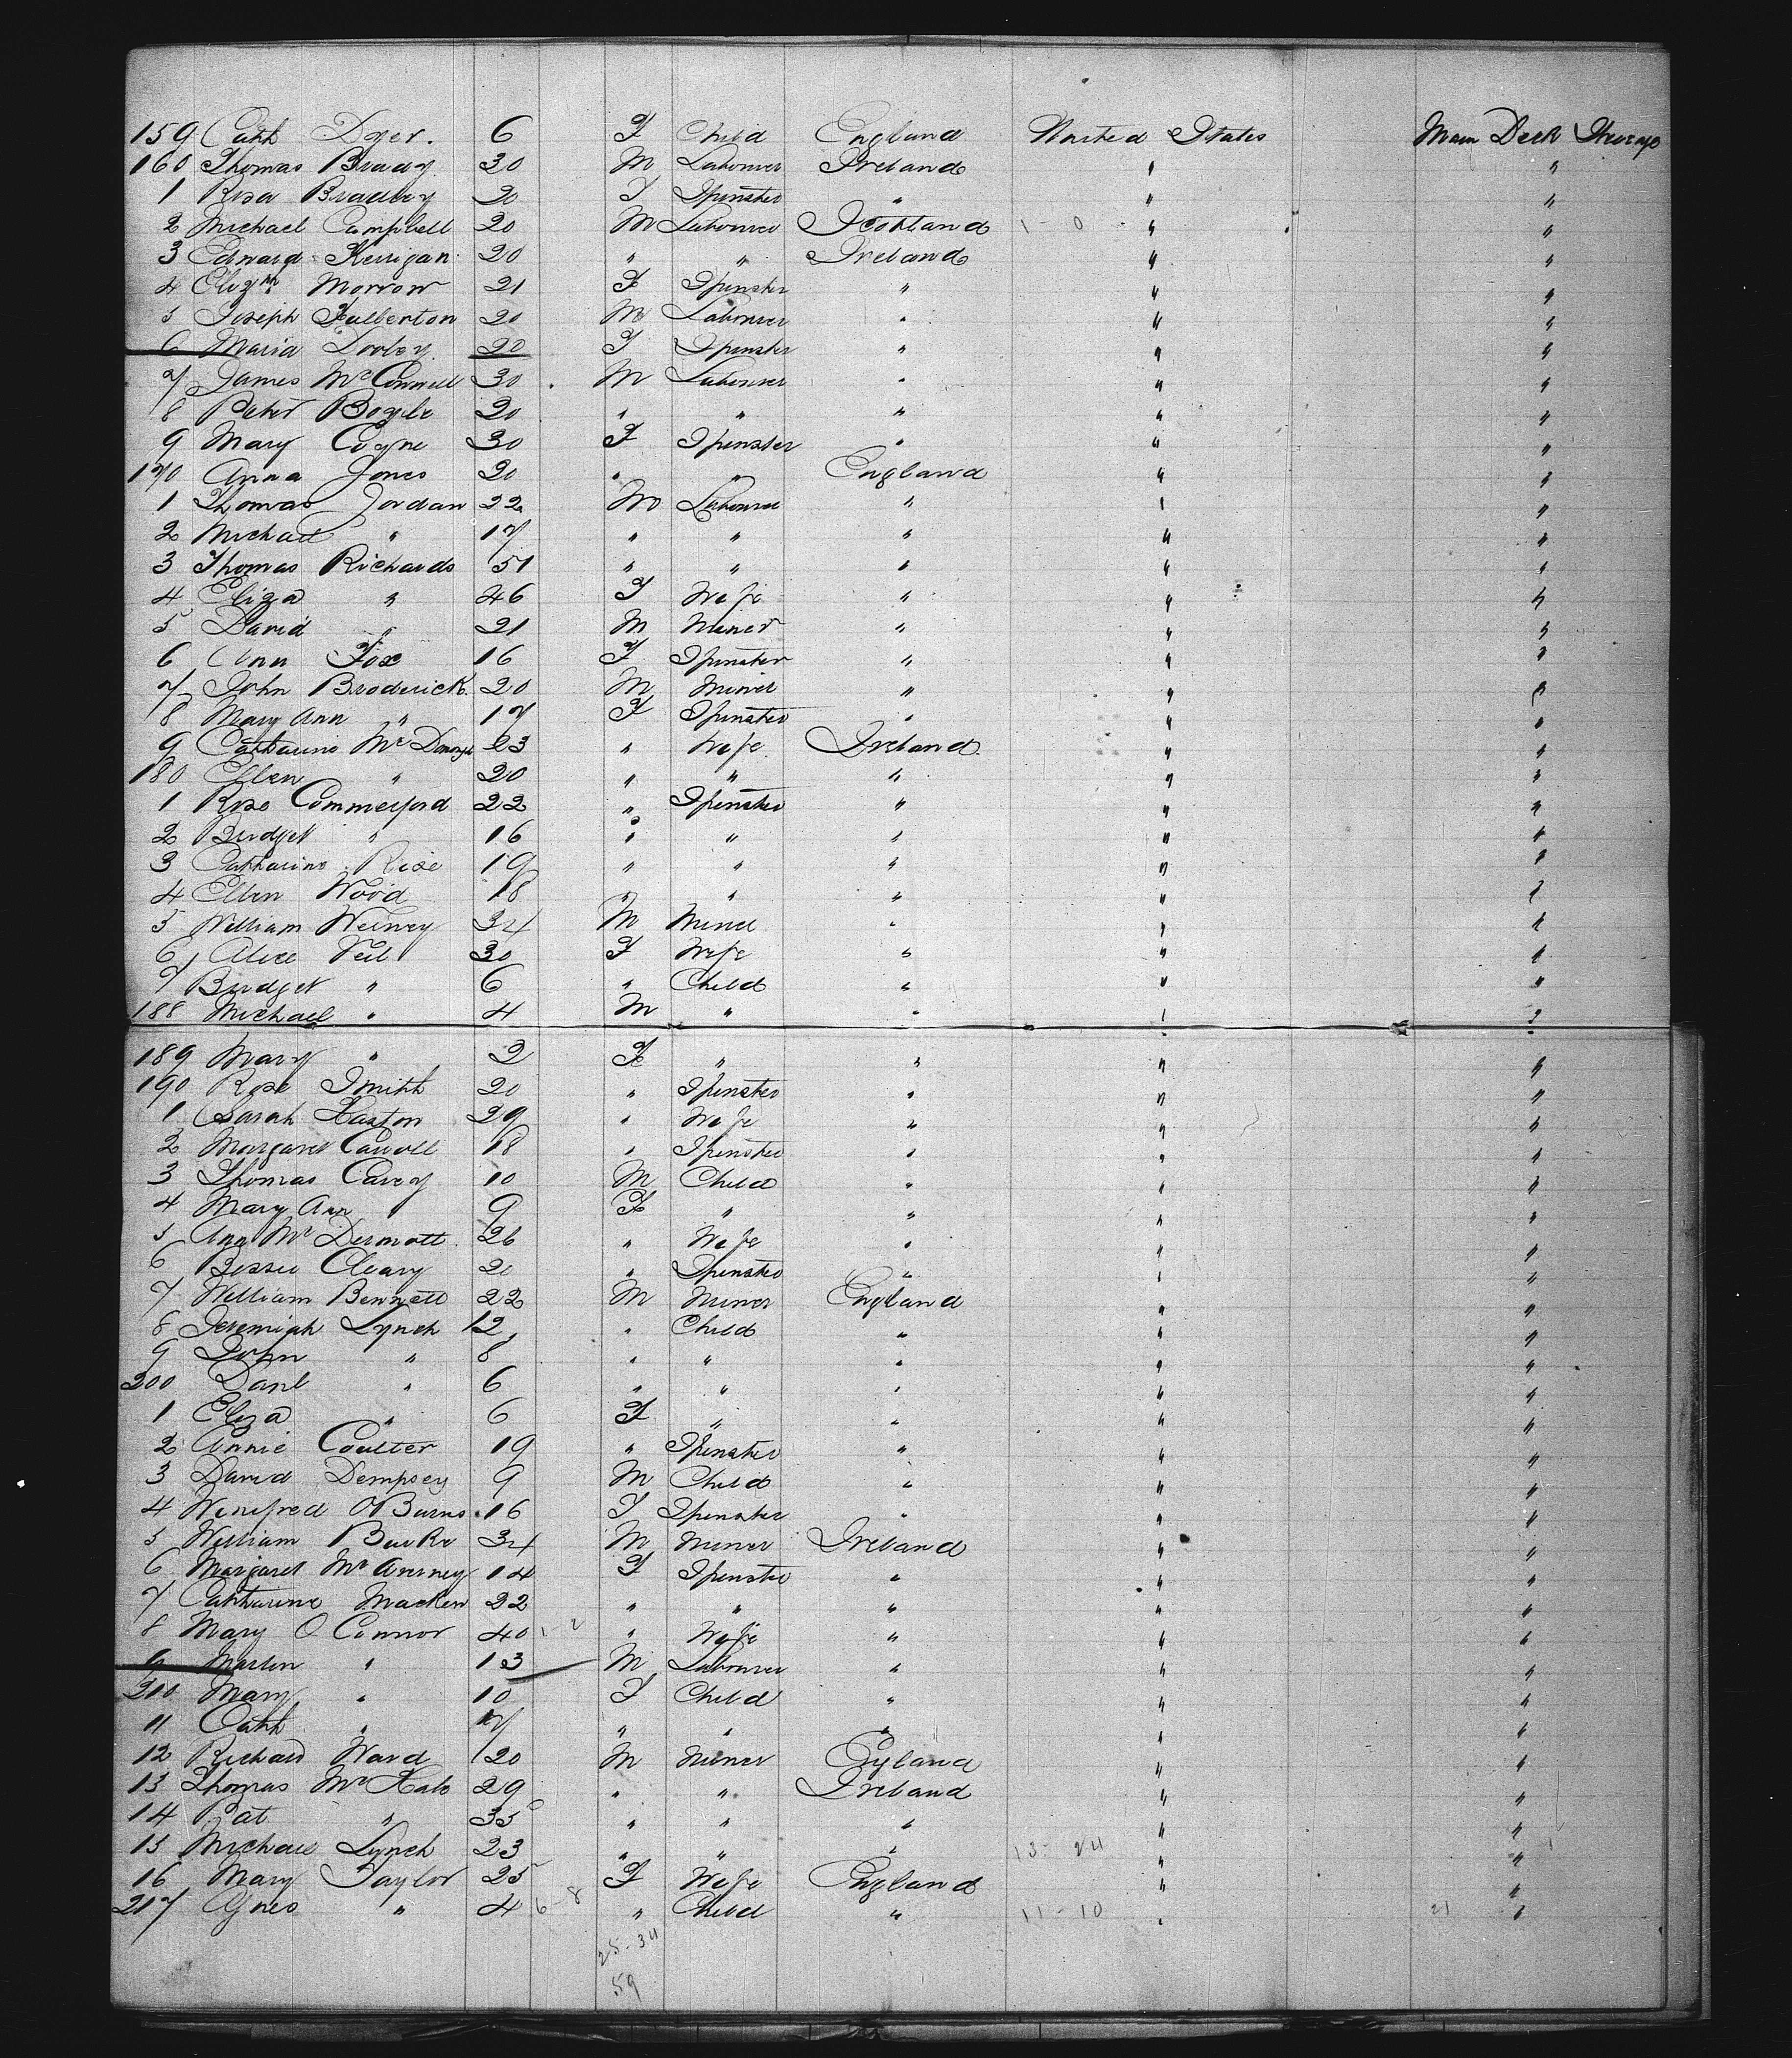 159 Cath Dyer. 6 F Child England United States Main Deck Steerage
160 Thomas Brady 30 M Labourer Ireland " "
1 Rosa Bradley 20 F Spinster " " "
2 Michael Campbell 20 M Labourer Scotland 1-0 " "
3 Edward Kerrigan 20 " " Ireland " "
4 Elizth Morrow 21 F Spinster " " "
5 Joseph Fullerton 20 M Labourer " " "
6 Maria Dooley 20 F Spinster " " "
7 James McConnell 30 M Labourer " " "
8 Peter Boyle 20 " " " " "
9 Mary Coyne 30 F Spinster " " "
170 Anna Jones 20 " " England " "
1 Thomas Jordan 22 M Labourer " " "
2 Michael " 17 " " " " "
3 Thomas Richards 51 " " " " "
4 Eliza " 46 F Wife " " "
5 David " 21 M Miner " " "
6 Ann Fox 16 F Spinster " " "
7 John Broderick 20 M Miner " " "
8 Mary Ann " 17 F Spinster " " "
9 Catharine McDonogh 23 " Wife Ireland " "
180 Ellen " 20 " " " " "
1 Rose Commerford 22 " Spinster " " "
2 Bridget " 16 " " " " "
3 Catharine Rise 19 " " " " "
4 Ellen Wood 18 " " " " "
5 William 34 M Miner " " "
6 Alice Neil 30 F Wife " " "
7 Bridget " 6 " Child " " "
188 Michael " 4 M " " " "
189 Mary " 2 F " " " "
190 Rose Smith 20 " Spinster " " "
1 Sarah Haston 29 " Wife " " "
2 Margaret Carroll 18 " Spinster " " "
3 Thomas Carey 10 M Child " " "
4 Mary Ann " 9 F " " " "
5 Ann McDermott 26 " Wife " " "
6 Bessie Cleary 20 " Spinster " " "
7 William Bennett 22 M Miner England " "
8 Jeremiah Lynch 12 " Child " " "
9 John " 8 " " " " "
200 Danl " 6 " " " " "
1 Eliza " 6 F " " " "
2 Annie Coulter 19 " Spinster " " "
3 David Dempsey 9 M Child " " "
4 Winifred OBurns 16 F Spinster " " "
5 William Burke 34 M Miner Ireland " "
6 Margaret 14 F Spinster " " "
7 Catharine Macken 22 " " " " "
8 Mary O Connor 40 1-2 " Wife " " "
9 Martin " 13 M Labourer " " "
210 Mary " 10 F Child " " "
11 Cath " 7 " " " " "
12 Richard Ward 20 M Miner England " "
13 Thomas McHale 29 " " Ireland " "
14 Pat " 35 " " " " "
15 Michael Lynch 23 " " " 13-24 " "
16 Mary Taylor 25 F Wife England " "
217 Agnes " 4 6-8 " Child " 11-10 " 21 "
25-34
59